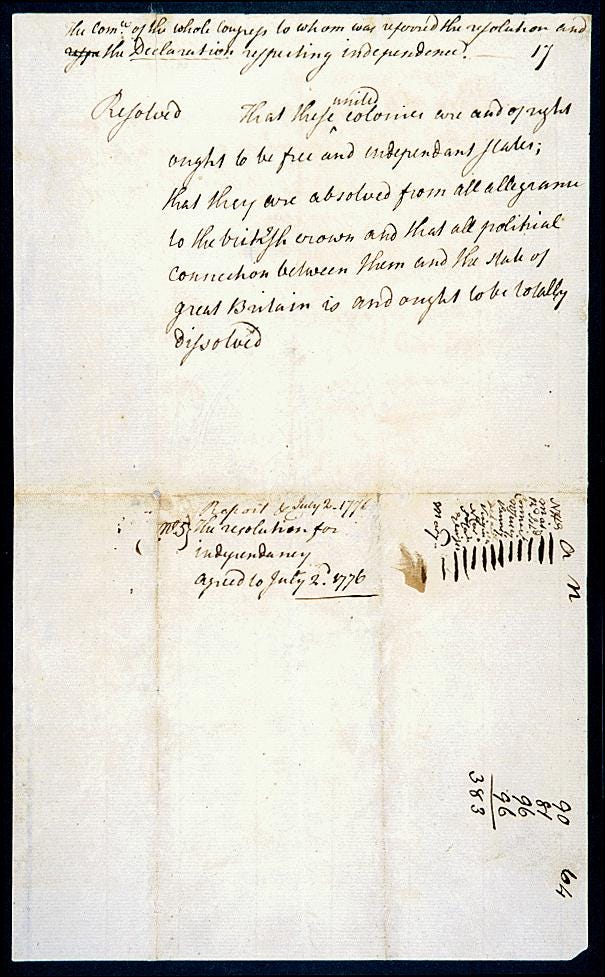 The Com.ee of the whole Congress to whom was referred the resolution and
the Declaration respecting independence.
17
Resolved That these united colonies are and of right
ought to be free and independant states;
that they are absolved from all allegiance
to the british crown and that all political
connection between them and the state of
great Britain is and ought to be totally
dissolved
Report & July 2. 1776
No 5} the resolution for
independancy
agreed to July 2d. 1776
a n
90
81
96
96
383
64